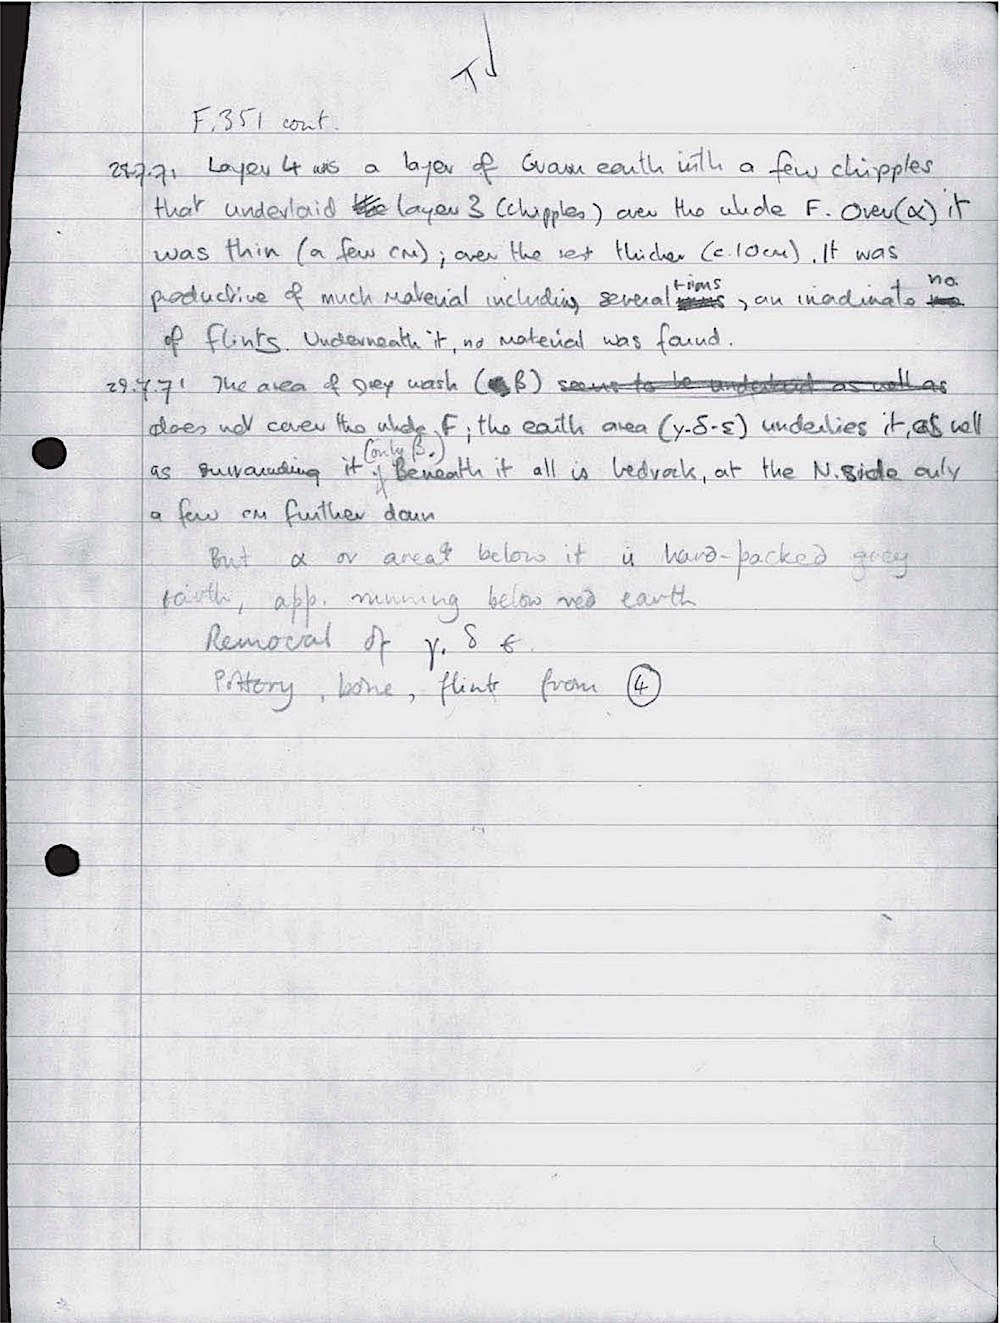 F.351 cont.
28.7.71 Layer 4 was a layer of brown earth with a few chipples
that underlaid the layer 3 (chipples) over the whole F. Over (α) it
was thin (a few cm); over the rest thicker (c.10cm). It was
productive of much material including several rims, an inordinate no.
of flints. Underneath it, no material was found.
29.7.71 The area of grey wash (β) seems to be underlaid as well as
does not cover the whole F; the earth area (γ-δ-ε) underlies it, as well
as surrounding it (only β.) Beneath it all is bedrock, at the N. side only
a few cm further down
But α or area below it is hard-packed grey
earth, app. running below red earth
Removal of γ, δ ε.
Pottery, bone, flint from ④